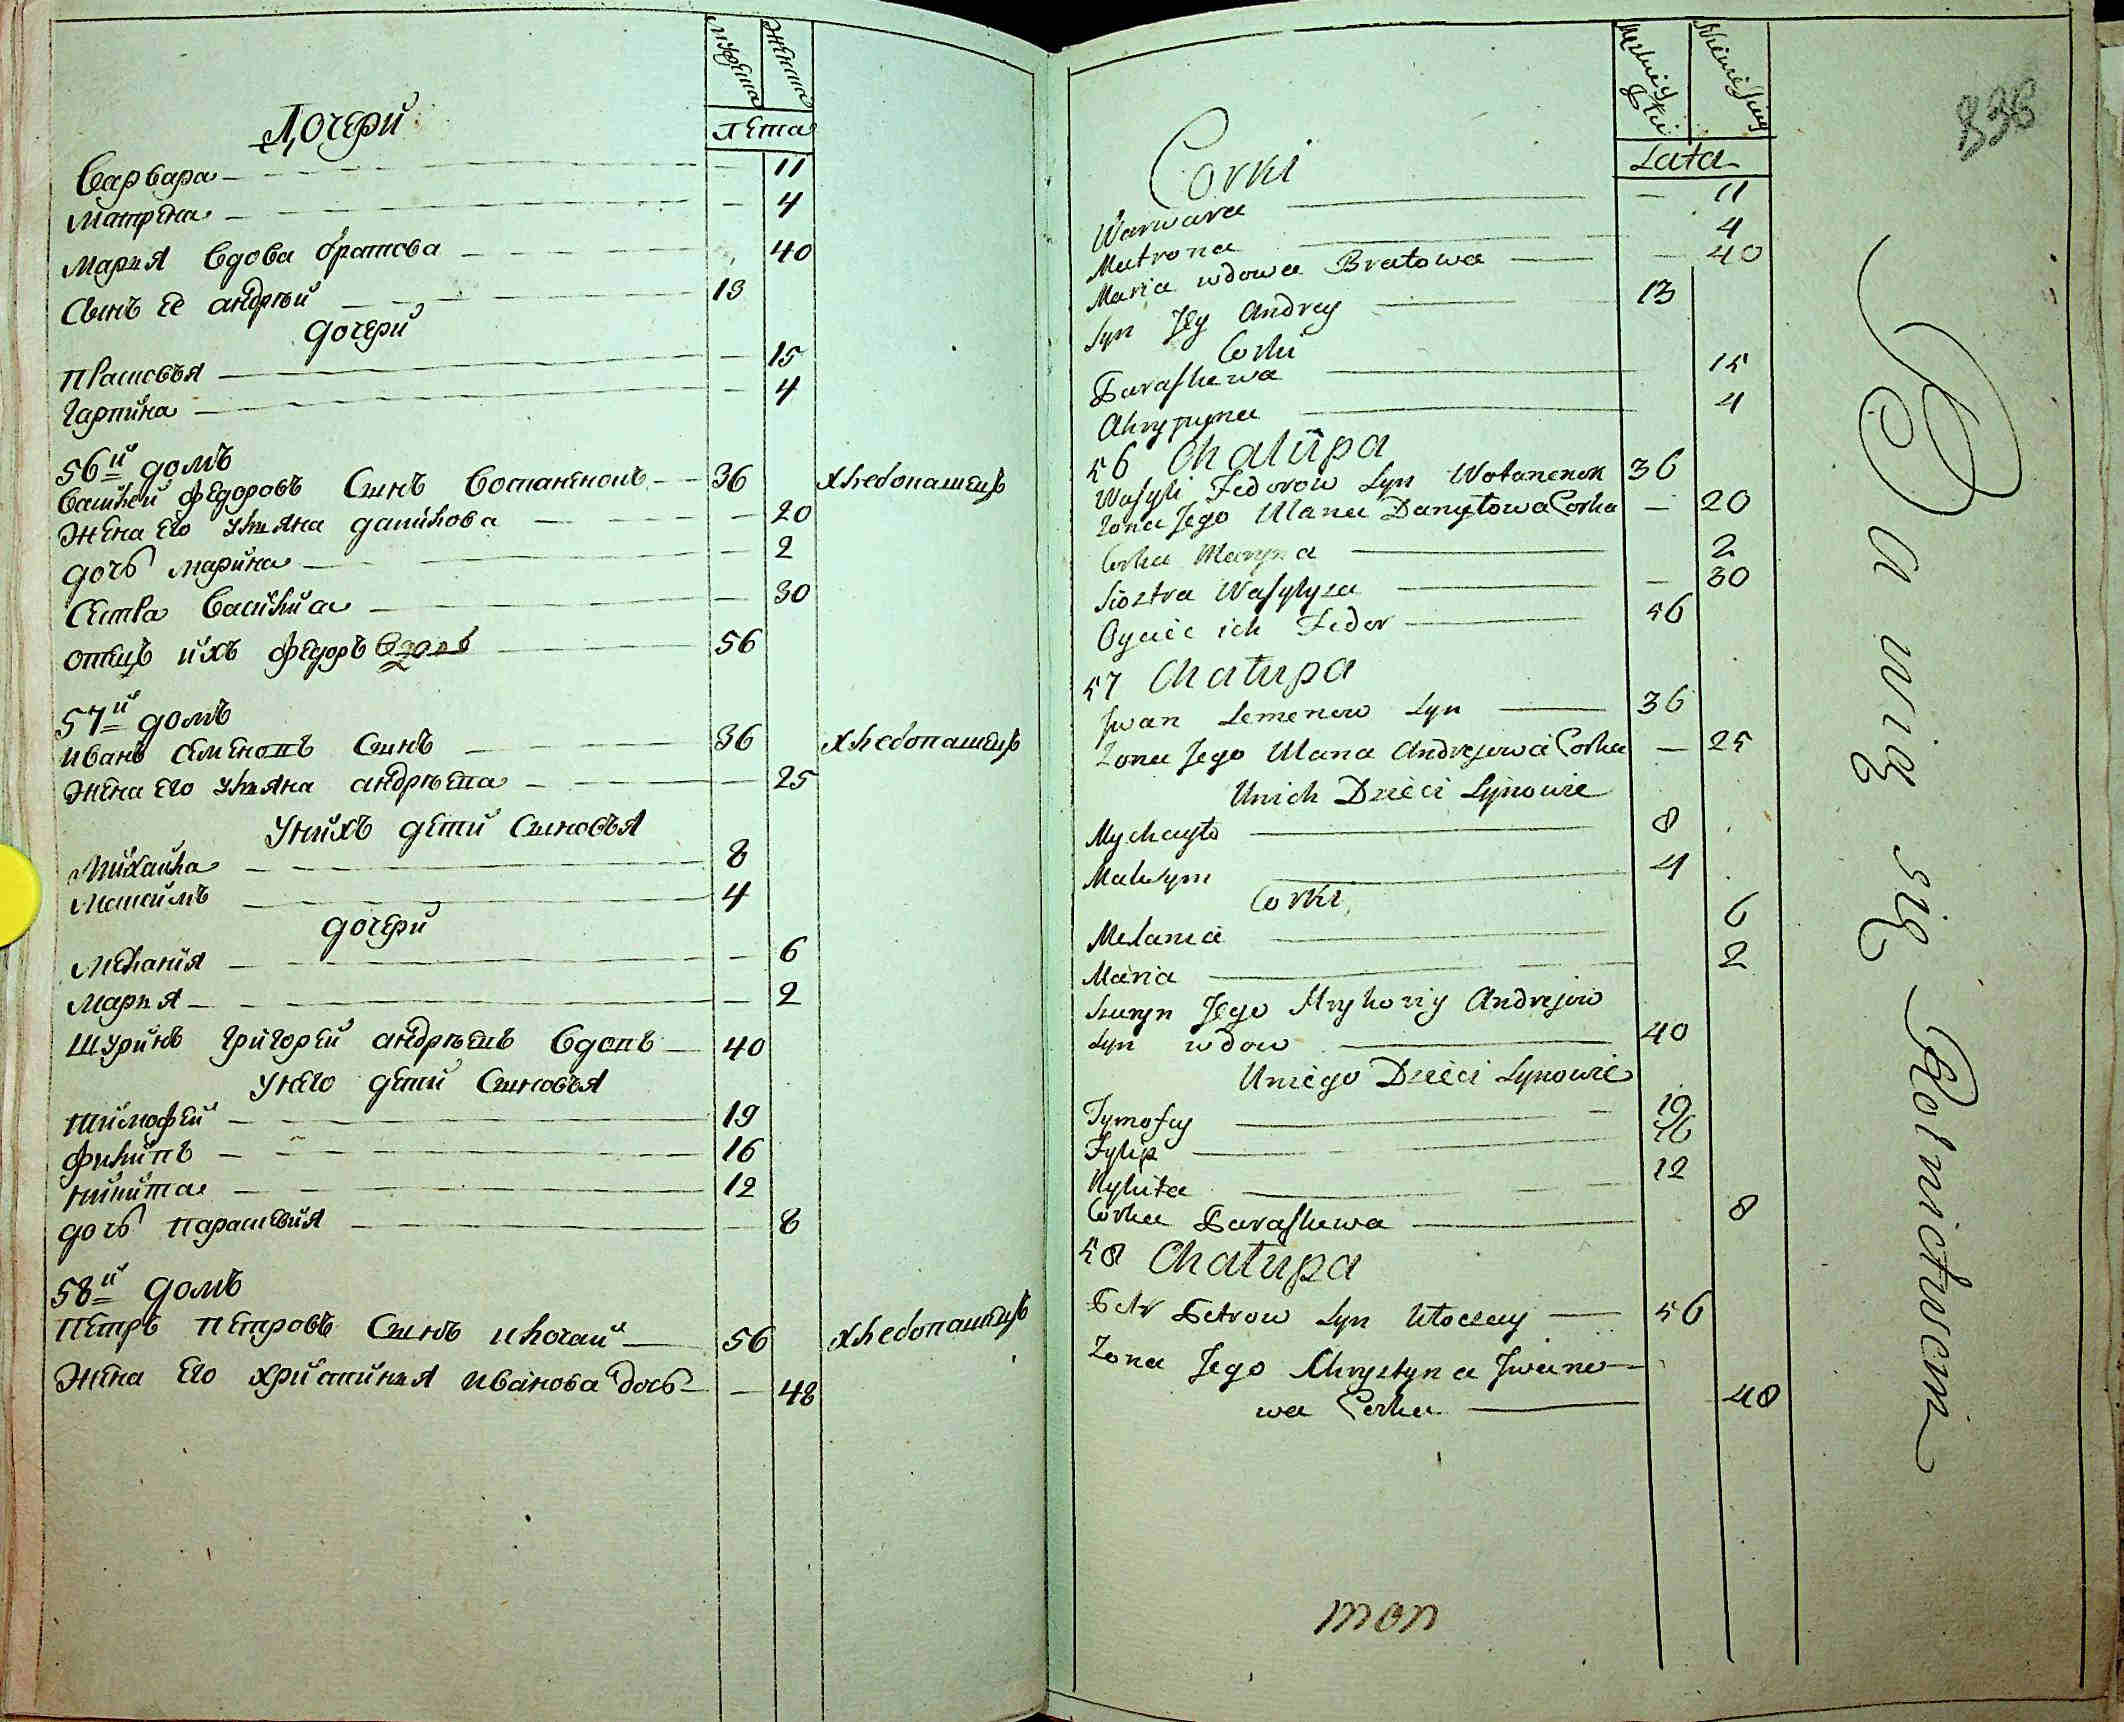 мужеска
женска
лета
Дочери
Варвара — 11
Матрена — 4
Мария вдова братова — 40
Сынъ ее андрѣй — 13
дочери
Прасковья — 15
Гарпина — 4
56й домъ
Василей федоровъ Сынъ — 36 хлебопашецъ
Жена его ульяна данилова — 20
дочь марина — 2
Сестра Василиса — 30
отецъ ихъ федоръ вдовъ — 56
57й домъ
иванъ семеновъ Сынъ — 36 хлебопашецъ
Жена его ульяна андрѣева — 25
Унихъ дети Сыновья
Михайла — 8
Максимъ — 4
дочери
Мелания — 6
Мария — 2
Шуринъ григорей андрѣевъ вдовъ — 40
Унего дети Сыновья
тимофей — 19
филипъ — 16
никита — 12
дочь параскевия — 8
58й домъ
Петръ петровъ Сынъ — 56 хлебопашецъ
Жена его христиния иванова дочь — 48
836
Lata
Corki
Warwara — 11
Matrona — 4
Maria wdowa Bratowa — 40
Syn Jey Andrey — 13
Corki
Paraskewa — 15
Ahrypyna — 4
56 Chałupa
Wasyli Fedorow Syn Wołanenok 36
Zona Jego Ulana Danyłowa Corka — 20
Corka Maryna — 2
Siostra Wasylysa — 30
Oyciec ich Fedor — 56
57 Chałupa
Jwan Semenow Syn — 36
Zona Jego Ulana Andrejewa Corka — 25
Unich Dzieci Synowie
Mychayło — 8
Maksym — 4
Corki
Melania — 6
Maria — 2
Szuryn Jego Hryhoriy Andrejow
Syn wdow — 40
Uniego Dzieci Synowie
Tymofey — 19
Fylip — 16
Nykita — 12
Corka Paraskewa — 8
58 Chałupa
Petr Petrow Syn — 56
Zona Jego Chrystyna Jwano-
wa Corka — 48
Bawią się Rolnictwem